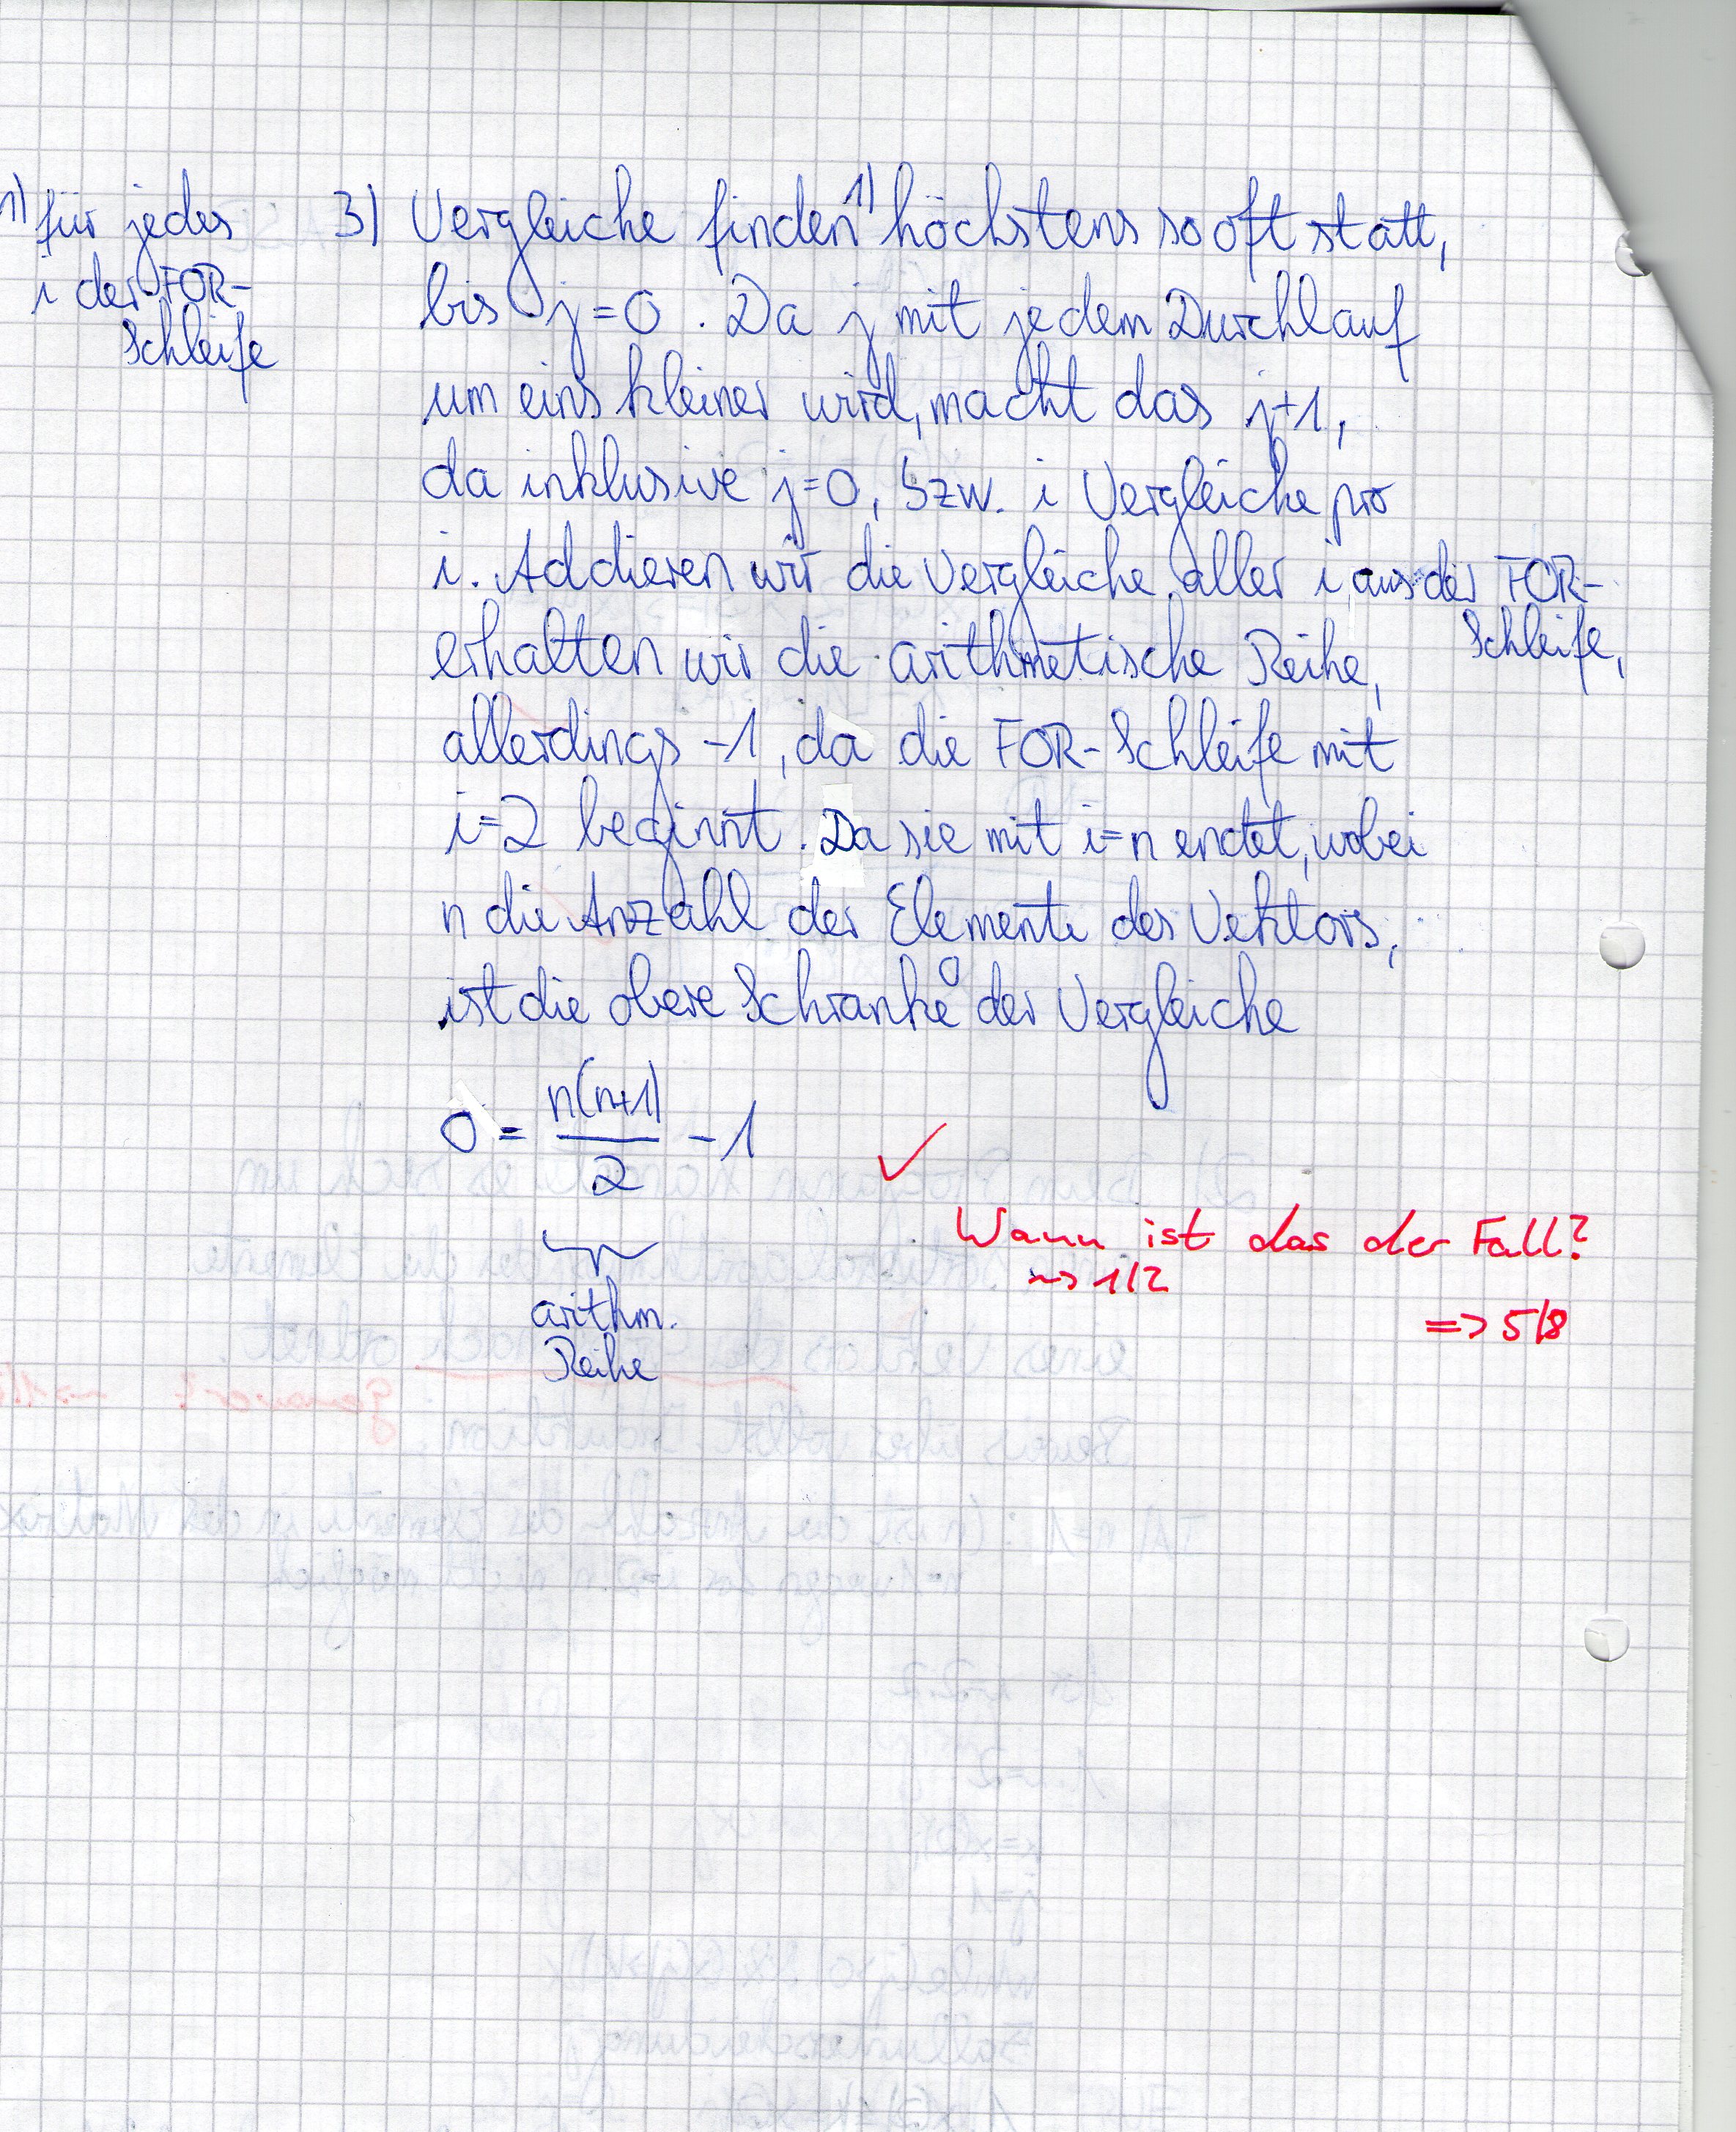 1) für jedes
i der FOR-
Schleife
3) Vergleiche finden 1) höchstens so oft statt,
bis j=0. Da j mit jedem Durchlauf
um eins kleiner wird, macht das j+1,
da inklusive j=0, bzw. i Vergleiche pro
i. Addieren wir die Vergleiche aller i aus der FOR-
Schleife,
erhalten wir die arithmetische Reihe,
allerdings -1, da die FOR-Schleife mit
i=2 beginnt. Da sie mit i=n endet, wobei
n die Anzahl der Elemente des Vektors,
ist die obere Schranke O der Vergleiche
O = n(n+1)/2 - 1
arithm.
Reihe
✓
Wann ist das der Fall?
~> 1/2
=> 5/8